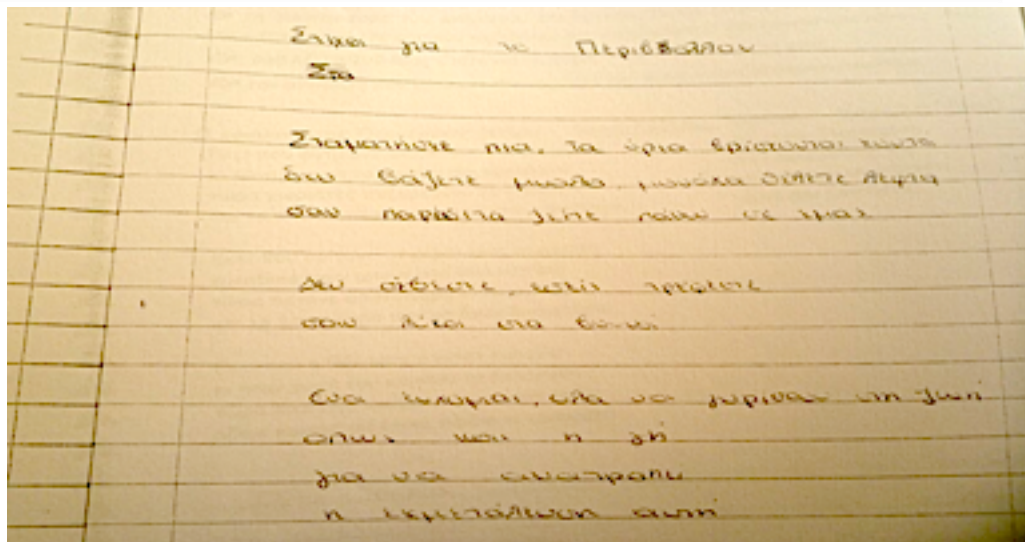 Στίχοι για το Περιβάλλον
Στα
Σταματήστε πια, τα όρια βρίσκονται κοντά
δεν βάζετε μυαλό, μονάχα θέλετε λεφτά
σαν παράσιτα ζείτε πάνω σε εμάς
Δεν σέβεστε, εσείς τρέφεστε
σαν λύκοι στα βουνά
Ένα εύχομαι, όλα να γυρίσουν στη ζωή
όπως και η γη
για να ανατραπεί
η εκμετάλευση αυτή